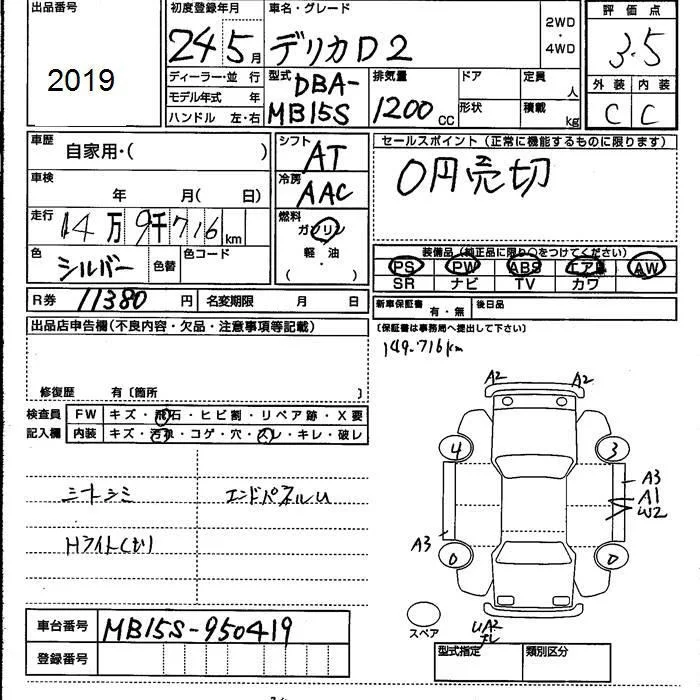 出品番号
2019
初度登録年月
24 5月
車名・グレード
デリカD2
2WD
・
4WD
評価点
3.5
外装 内装
C C
ディーラー・並 行
モデル年式 年
ハンドル 左・右
型式 DBA-
MB15S
排気量
1200 cc
ドア
形状
定員
人
積載
kg
車歴
自家用・( )
車検
年 月( 日)
走行
14万9千716km
色
シルバー
色替
色コード
シフト
AT
冷房
AAC
燃料
ガソリン
軽・油
( ・ )
セールスポイント (正常に機能するものに限ります)
0円売切
装備品(純正品に限り○をつけてください)
PS PW ABS エアB AW
SR ナビ TV カワ
R券 11380 円
名変期限 月 日
新車保証書 有・無
後日品
(保証書は事務局へ提出して下さい)
149.716km
出品店申告欄(不良内容・欠品・注意事項等記載)
修復歴 有〔箇所 〕
検査員
記入欄
FW キズ・飛石・ヒビ割・リペア跡・X要
内装 キズ・汚れ・コゲ・穴・スレ・キレ・破レ
エンドパネルU
A2 A2
4 3
A3
A1
W2
A3
0 0
UA2
スペア
車台番号 MB15S-950419
登録番号
型式指定 類別区分